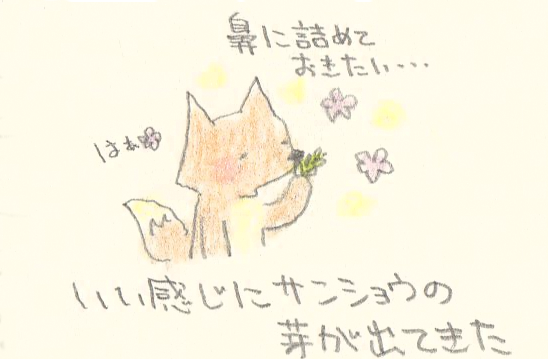 鼻に詰めて
おきたい・・・
はぁ
いい感じにサンショウの
芽が出てきた